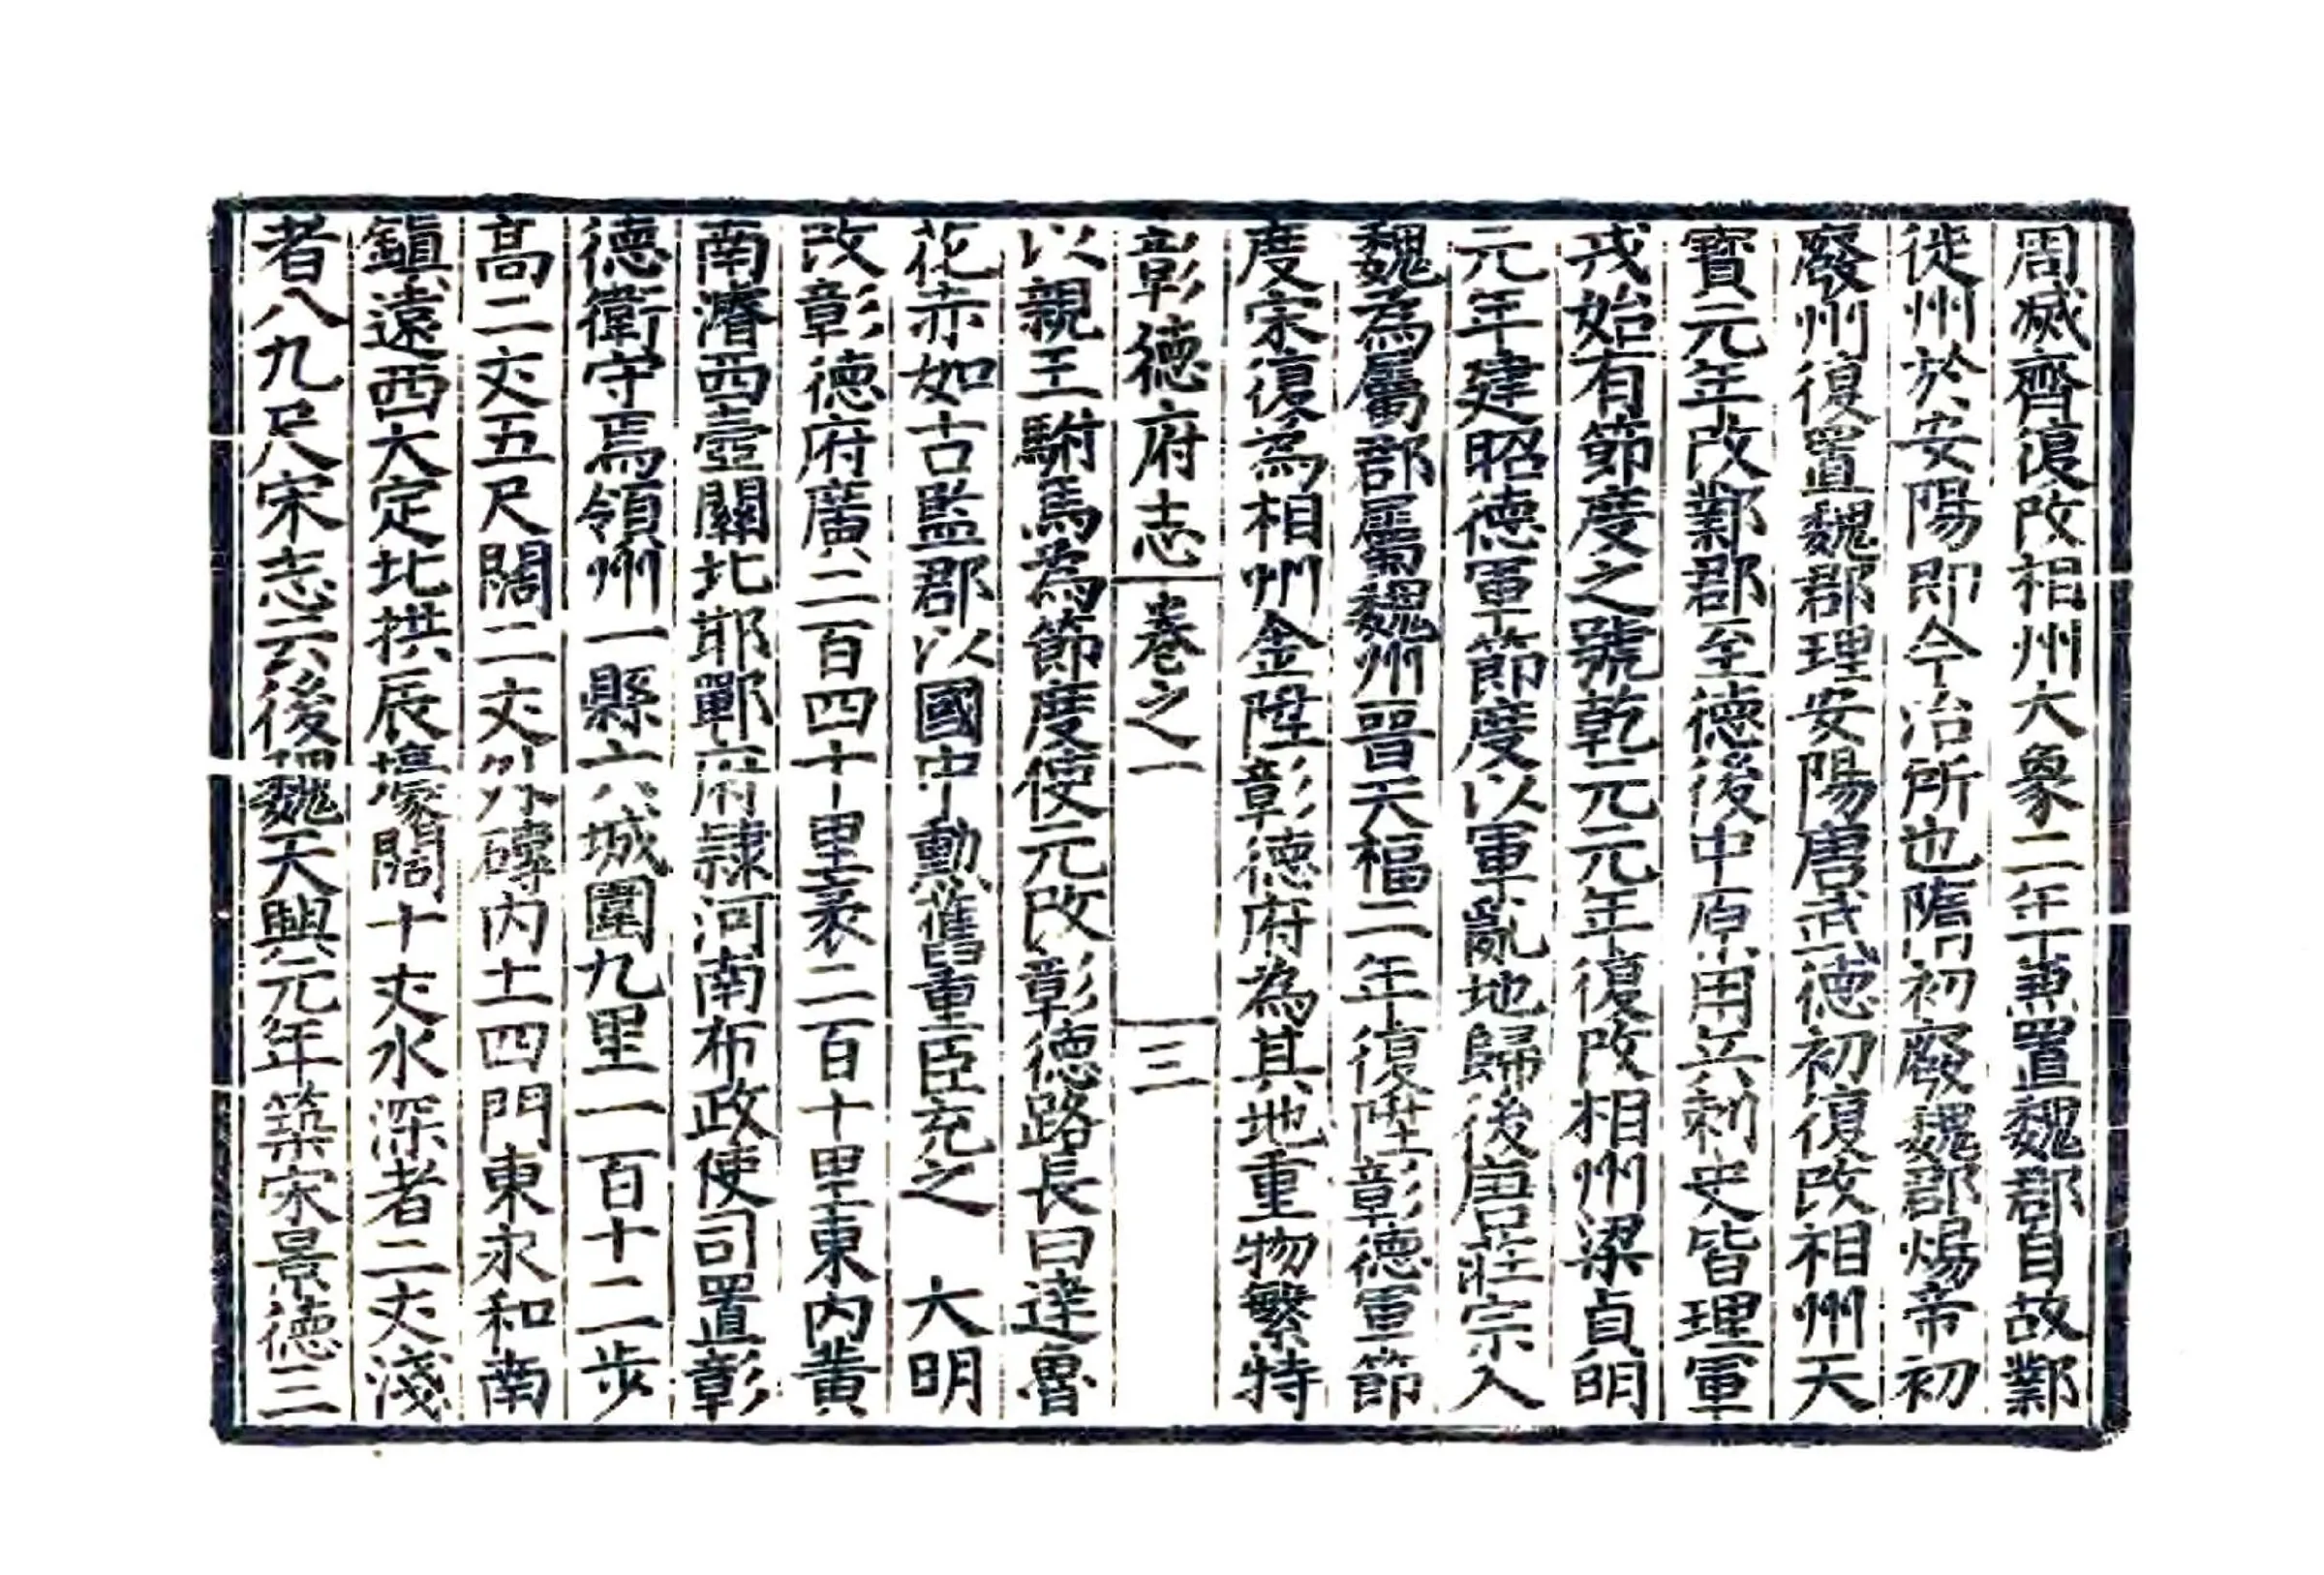 周滅齊復改相州大象二年下兼置魏郡自故鄴
徙州於安陽即今治所也隋初廢魏郡煬帝初
廢州復置魏郡理安陽唐武德初復改相州天
寶元年改鄴郡至德後中原用兵刺史皆理軍
戎始有節度之號乾元元年復改相州梁貞明
元年建昭德軍節度以軍亂地歸後唐莊宗入
魏為屬郡屬魏州晉天福二年復陞彰德軍節
度宋復為相州金陞彰德府為其地重物繁特
彰德府志 卷之一 三
以親王駙馬為節度使元改彰德路長曰達魯
花赤如古監郡以國中勳舊重臣充之 大明
改彰德府廣二百四十里袤二百十里東內黃
南濬西壺關北邯鄲府隸河南布政使司置彰
德衛守焉領州一縣六城圍九里一百十二步
高二丈五尺闊二丈外磚內土四門東永和南
鎮遠西大定北拱辰壕闊十丈水深者二丈淺
者八九尺宋志云後魏天興元年築宋景德三